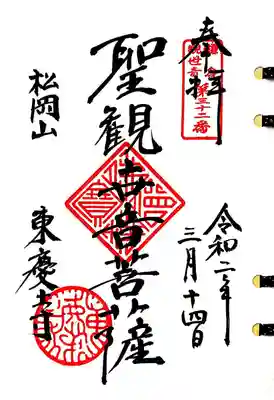 奉拝
鎌倉
観世音
第三十二番
令和二年
三月十四日
聖観世音菩薩
松岡山
東慶寺